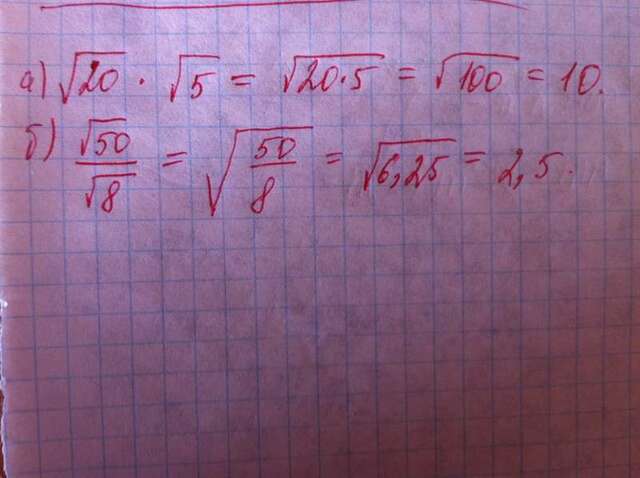 а) √20 · √5 = √20·5 = √100 = 10.
б) √50/√8 = √50/8 = √6,25 = 2,5.